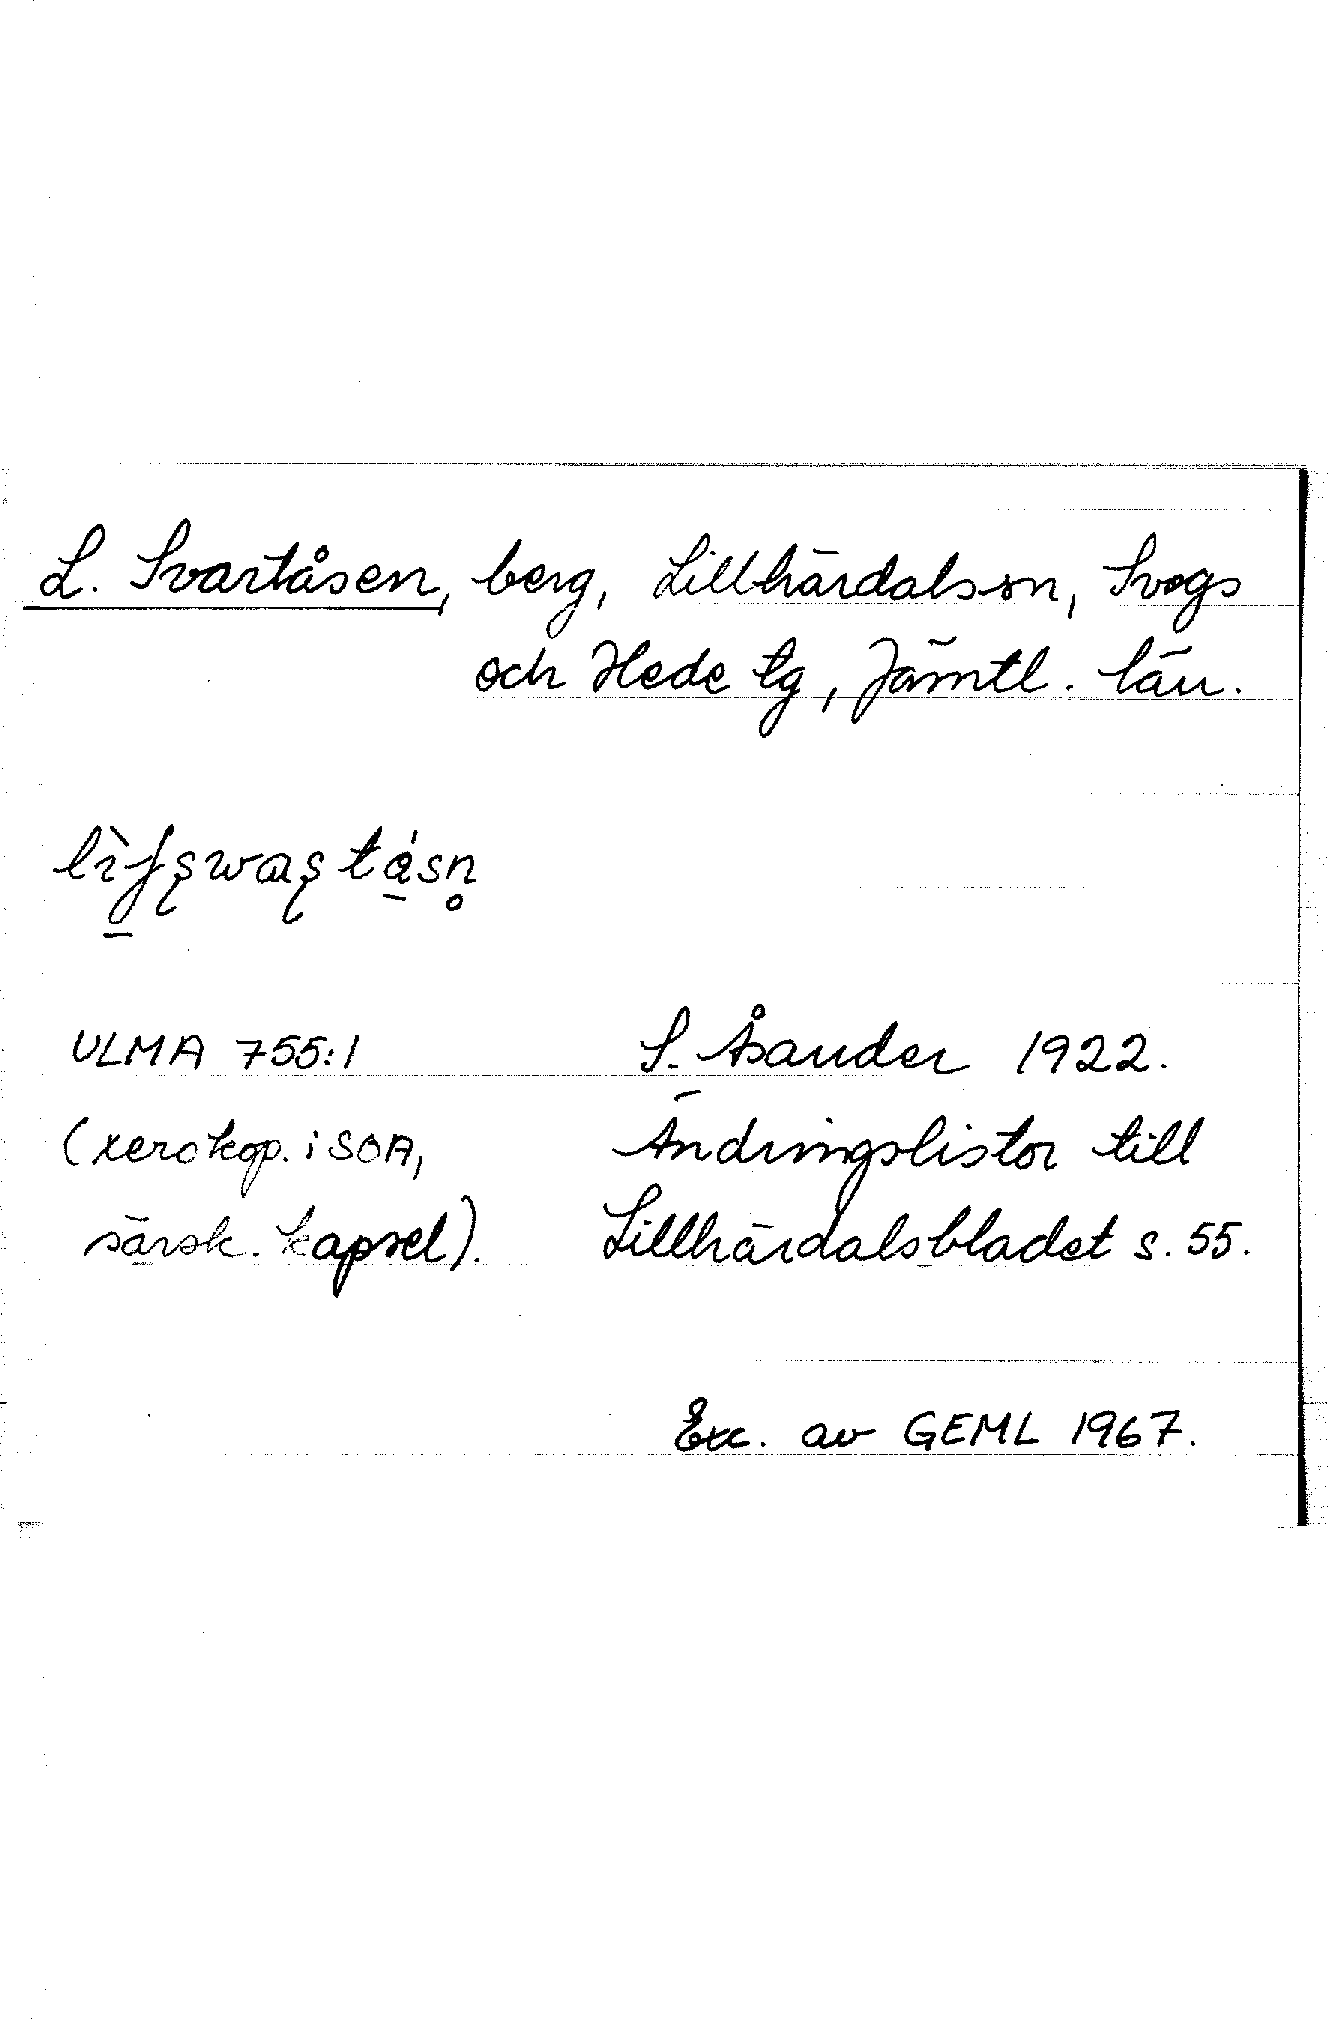 L. Svartåsen, berg, Lillhärdalssn, Svegs
och Hede tg, Jämtl. län.
ULMA 755:1 S. Åsander 1922.
(xerokop. i SOA, Ändringslistor till
särsk. kapsel). Lillhärdalsbladet s. 55.
Exc. av GEML 1967.